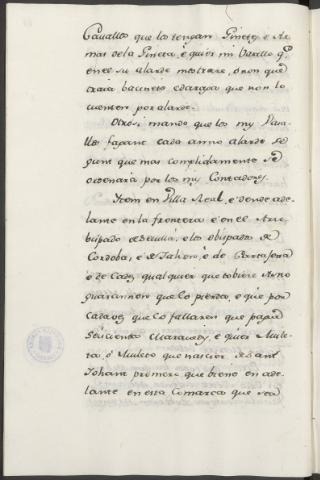 Cavallos que los tengan Ginetes e Ar-
mas de la Gineta, e quier mi Vasallo q.e
en el su alarde mostrare, o non que
traia bacinete e darapa que non lo
cuenten por alarde.
Otrosi mando que los mis Vasa-
llos fagan cada anno alarde se-
gunt que mas complidamente se
ordenara por los mis Contadores.
Item en Villa Real, e dende ade-
lante en la frontera e en el Arzo-
bispado de Sevilla, e los obispados de
Cordoba, e de Jahen, e de Cartagena
e de Cadiz qual quier que tobiere Asno
guarannon que lo pierda, e que por
cada vez que lo fallaren que pague
Seiscientos Maravedis, e quier Mule-
ta, o Muleto que nascier de Sant
Johan primero que biene en ade-
lante en esta Comarca que sea